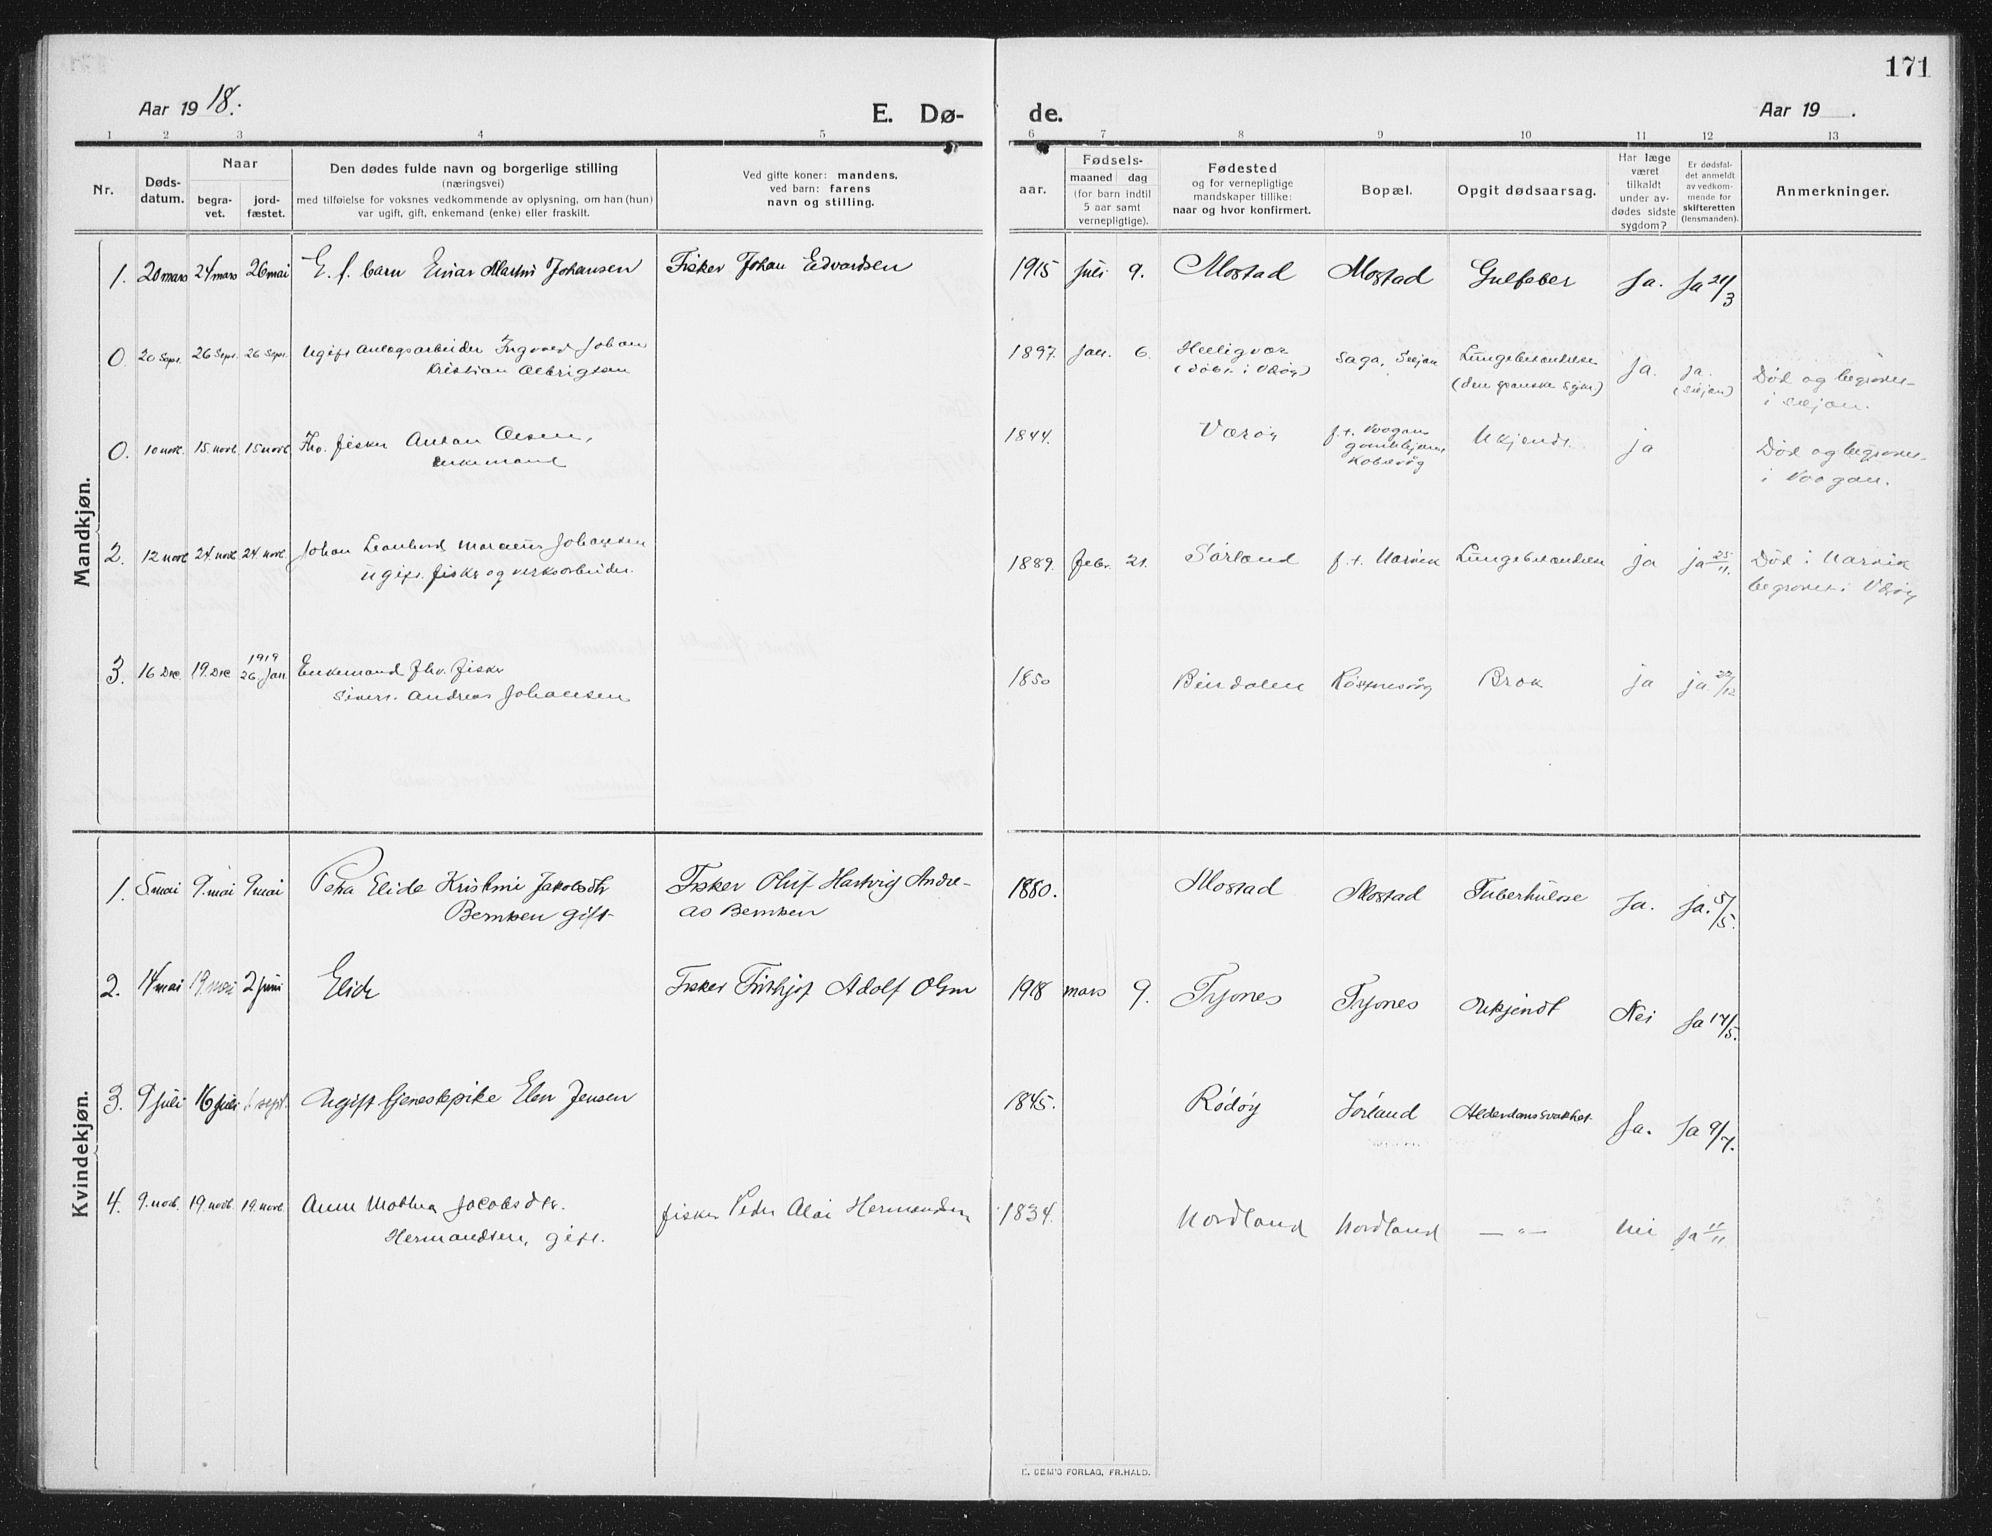 171
Aar 1918.
E. Dø-
de.
Aar 19 .
1 2 3 4 5 6 7 8 9 10 11 12 13
Nr.
Døds-
datum.
Naar
begra-
vet.
jord-
fæstet.
Den dødes fulde navn og borgerlige stilling
(næringsvei)
med tilføielse for voksnes vedkommende av oplysning, om han (hun)
var ugift, gift, enkemand (enke) eller fraskilt.
Ved gifte koner: mandens,
ved barn: farens
navn og stilling.
aar.
Fødsels-
maaned dag
(for barn indtil
5 aar samt
vernepligtige).
Fødested
og for vernepligtige
mandskaper tillike:
naar og hvor konfirmert.
Bopæl.
Opgit dødsaarsag.
Har læge
været
tilkaldt
under av-
dødes sidste
sygdom?
Er dødsfal-
det anmeldt
av vedkom-
mende for
skifteretten
(lensmanden).
Anmerkninger.
Mandkjøn.
1. 20 mars 24 mars 26 mai E. f. barn Einar Martin Johansen Fisker Johan Edvardsen 1915 juli 9. Mostad Mostad Gulfeber Ja. Ja 21/3
0 20 Sept. 26 Sept. 26 Sept. Ugift Anlægsarbeider Ingvald Johan 1897 Jan. 6. Helligvær Saga, Ja. ja.
Kristian Albrigtsen (døbt i Værøy) (den spanske syke) Død og begravet
i
0. 10 novb. 15 novb. 15 novb. Fhv. fisker Anton Olsen, 1844. Værøy f. t. Vaagan Ukjendt ja
enkemand gamlehjem, Død og begravet
Kabelvåg i Vaagan.
2. 12 novb 24 novb 24. novb. Johan Leonhard Johansen 1889. Febr. 21. Sørland f. t. Narvik Lungebetændelse ja ja 25/11. Død i Narvik
ugift. fisker og verksarbeider. begravet i Værøy
1919
3. 16 Dec. 19. Dec 26. Jan Enkemand fhv. fisker 1850 Bindalen Røssnesvåg Brok ja ja 22/12
Sivert Andreas Johansen
Kvindekjøn.
1. 5 mai 9. mai 9 mai Petra Elide Kristine Jakobsdtr Fisker Oluf Hartvig Andre- 1880. Mostad Mostad Tuberkulose Ja. Ja. 5/5.
Berntsen gift as Berntsen
2. 14 mai 19. mai 2 juni Elide Fisker Frithjof Adolf Olsen 1918 mars 9. Tyvnes Tyvnes Ukjendt Nei Ja 17/5.
3. 9 juli 16 juli sept. Ugift tjenestepike Elen Jensen 1845. Rødøy Sørland Alderdomssvakhet Ja. Ja 9/7.
4. 9. novb. 19. novb. 19. novb. Anne Mathea Jacobsdtr. fisker Peder Alai Hermandsen 1834. Nordland Nordland — „ — Nei ja 11/11
Hermandsen, gift.
E. SEM'S FORLAG, FR.HALD.